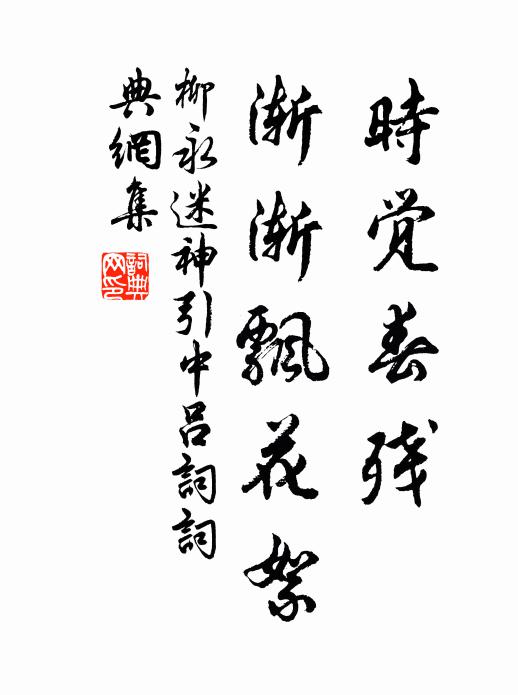 時覺春残
漸漸飄花絮
柳永迷神引中呂詞詞
典網集
詞典网印